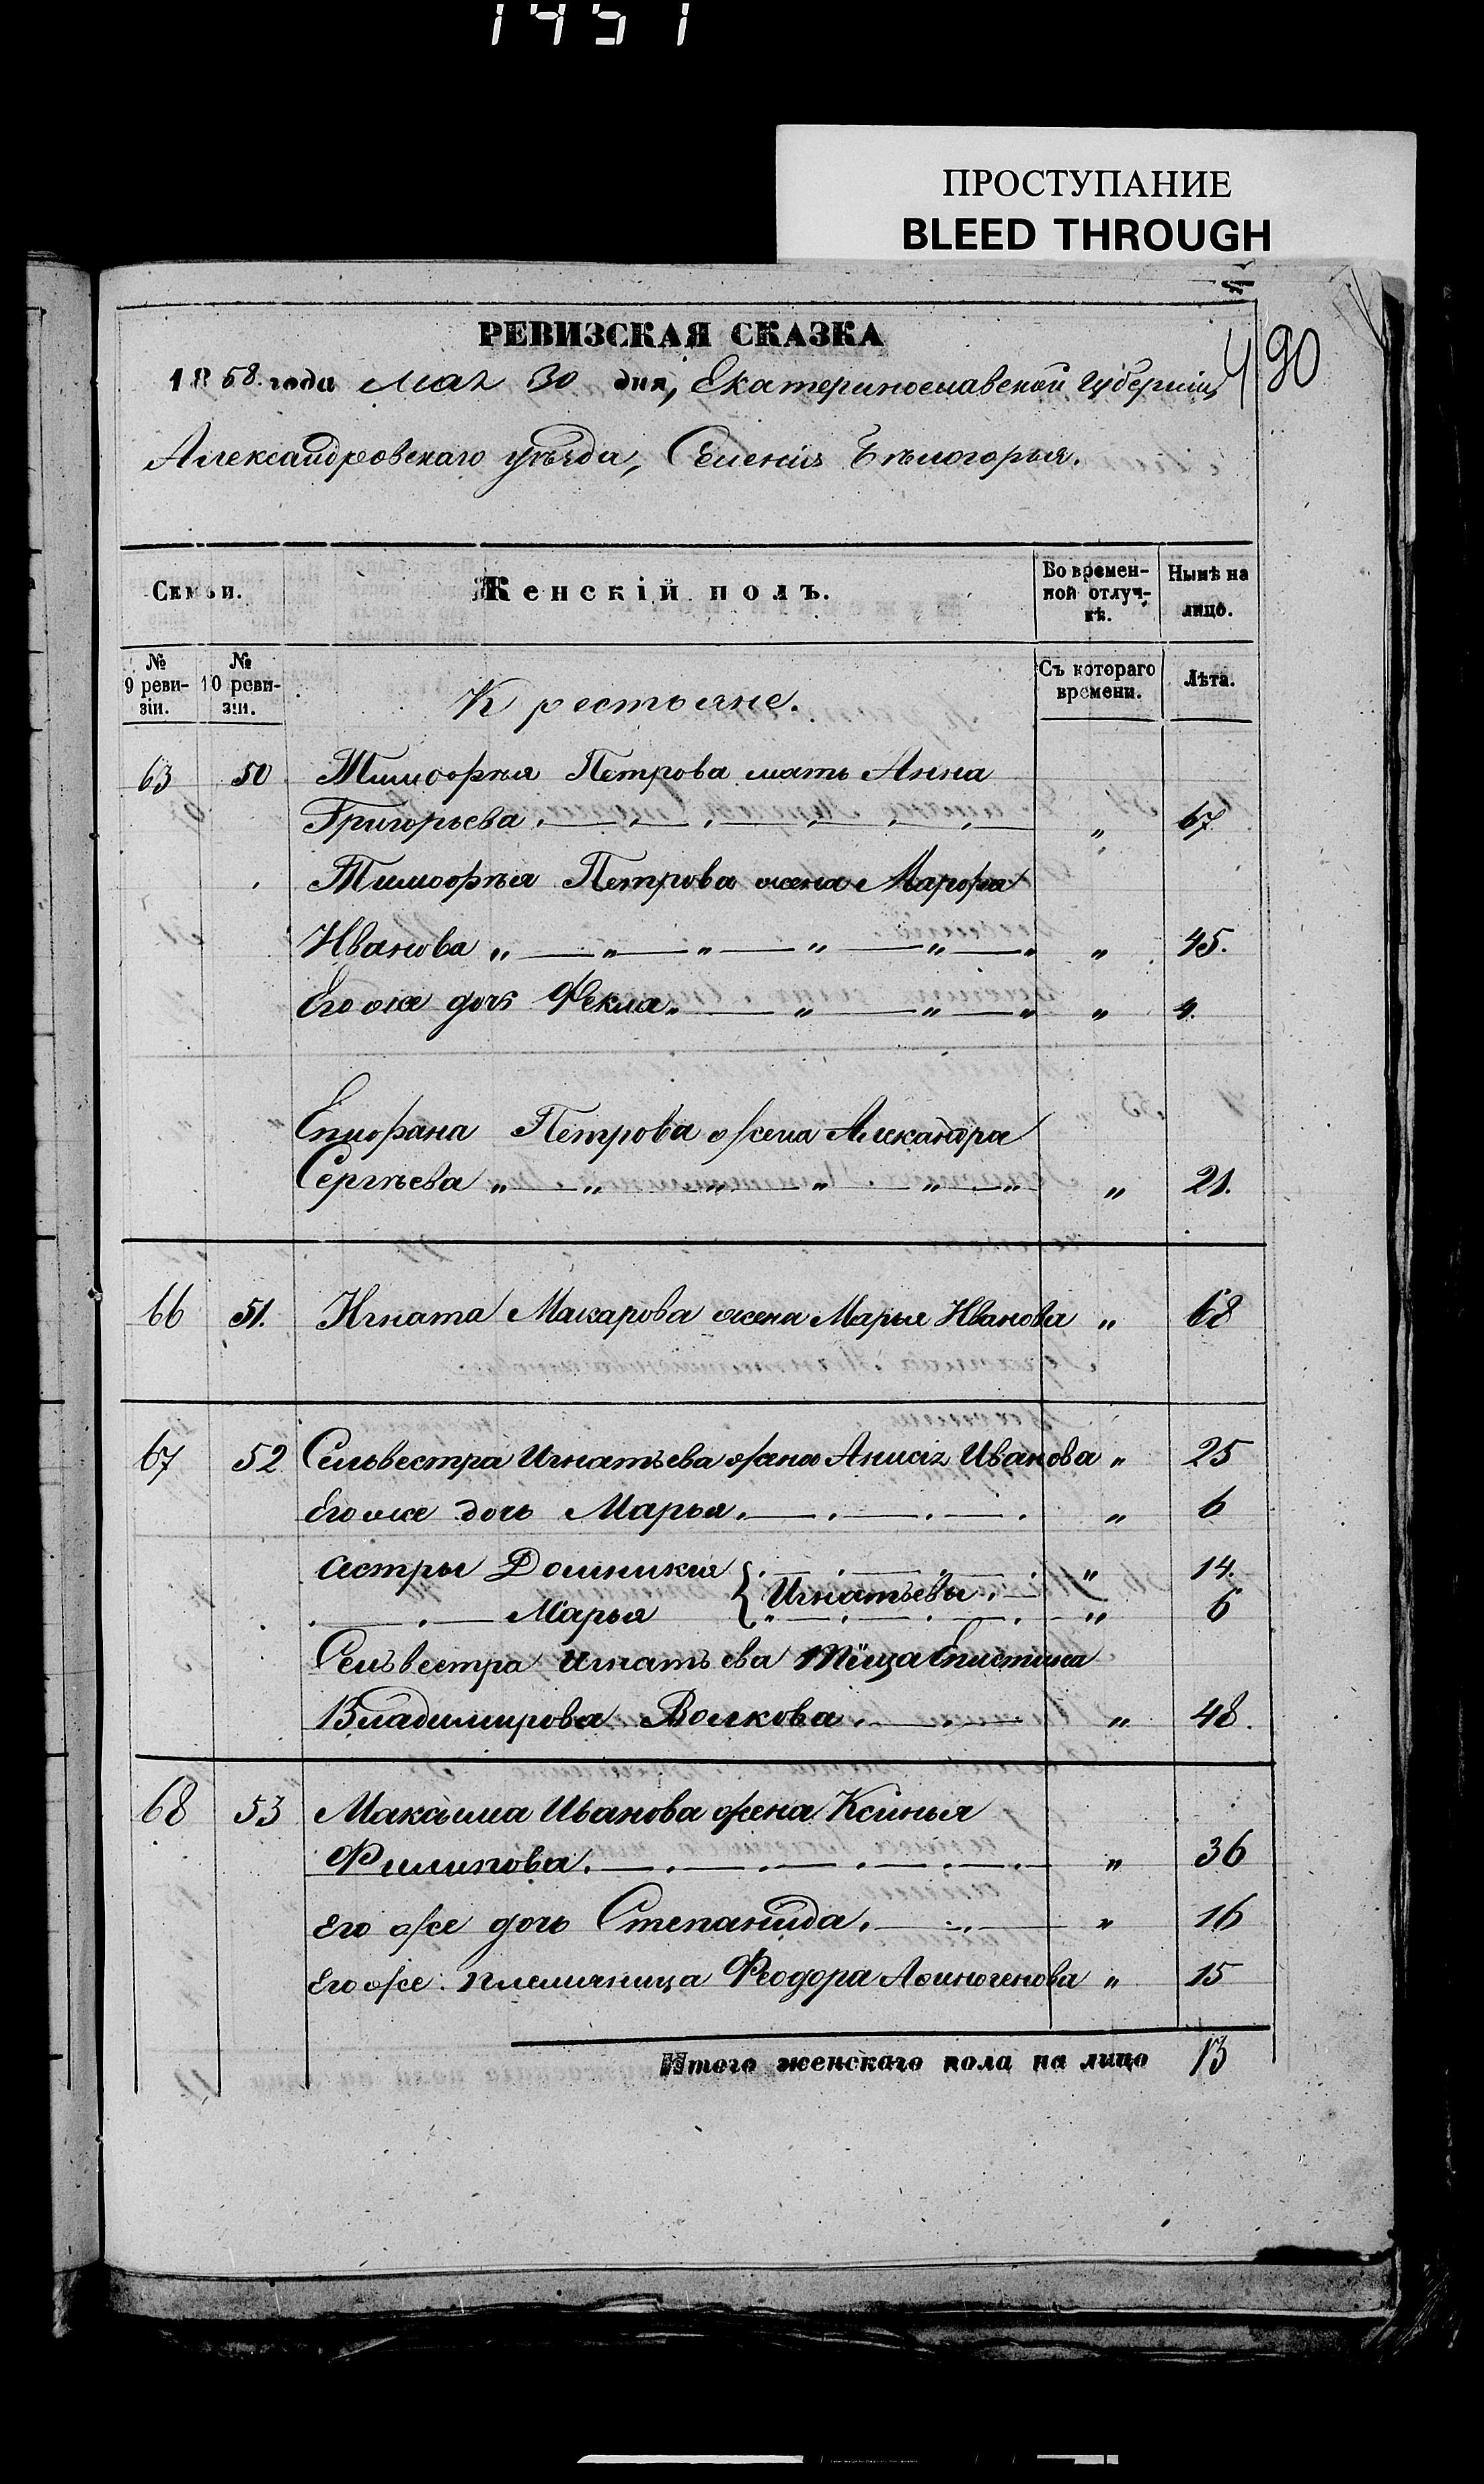 1451
ПРОСТУПАНИЕ
BLEED THROUGH
РЕВИЗСКАЯ СКАЗКА
1858. года Мая 30 дня, Екатеринославской Губерніи,
490
Александровскаго уѣзда, Селенія Бѣлогорья.
Семьи. Женскій полъ. Во времен- Нынѣ на
ной отлуч- лицо.
кѣ.
№ № Съ котораго Лѣта.
9 реви- 10 реви- времени.
зіи. зіи.
Крестьяне.
63 50 Тимофѣя Петрова мать Анна
Григорьева „ 67
Тимофѣя Петрова жена Марфа
Иванова „ — „ — „ — „ — „ — „ „ 45.
Его же дочь Фекла „ — „ — „ — „ „ 4.
Епифана Петрова жена Алекандра
Сергѣева „ — „ — „ — „ — „ — „ „ 21.
66 51. Игната Макарова жена Марья Иванова „ 68
67 52 Сельвестра Игнатьева жена Анисія Иванова „ 25
Его же дочь Марья. — . — . — . „ 6
Сестры Домникия { „ 14.
— . — Марья { Игнатьевы. „ 6
Сельвестра Игнатьева тёща Епистима
Владимирова Волкова. — . — „ 48.
68 53 Максима Иванова жена Ксинья
Филипова. — . — . — . — . — „ 36
Его же дочь Степанида. — „ — „ 16
Его же племяница Феодора Афиногенова „ 15
Итого женскаго пола на лицо 13